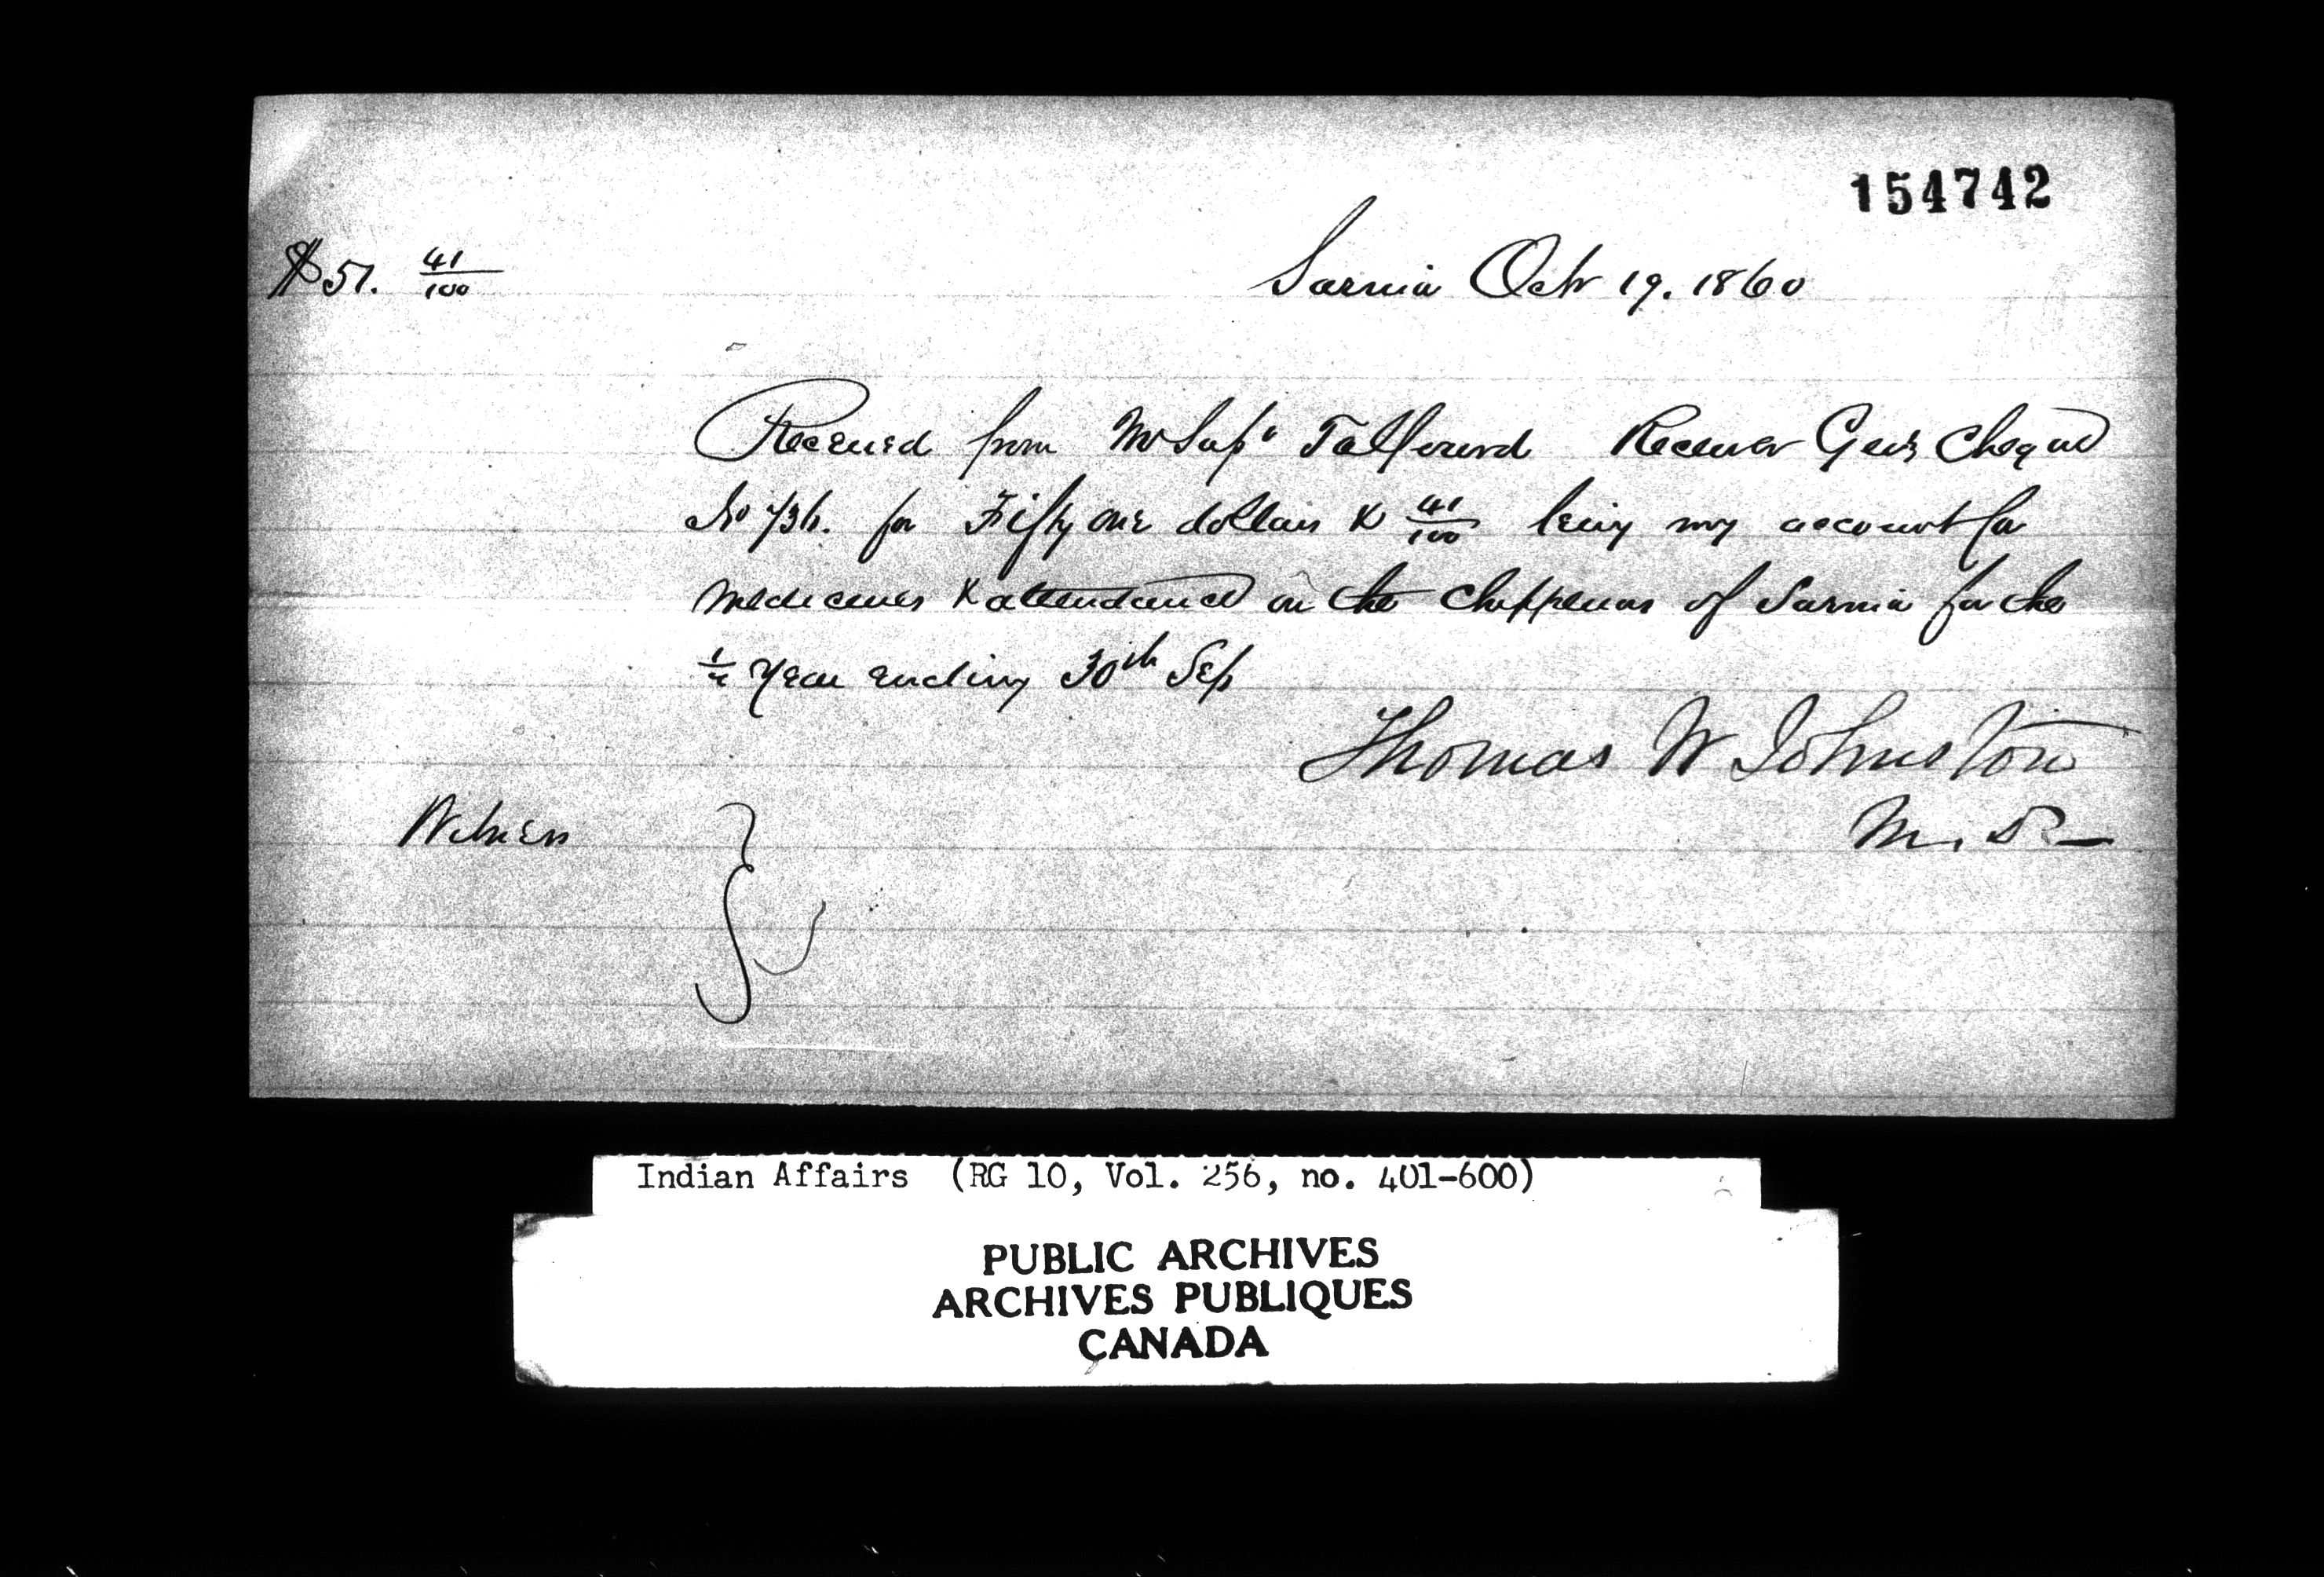 154742
$51. 41/100
Sarnia Octr 19. 1860
Received from Mr Supt Talfourd Receiver Genls Cheque
No 736. for Fifty one dollars & 41/100 being my account for
medicines & attendance on the Chippewas of Sarnia for the
1/4 year ending 30th Sep
Thomas W Johnston
M. D.
Witness
Indian Affairs (RG 10, Vol. 256, no. 401-600)
PUBLIC ARCHIVES
ARCHIVES PUBLIQUES
CANADA